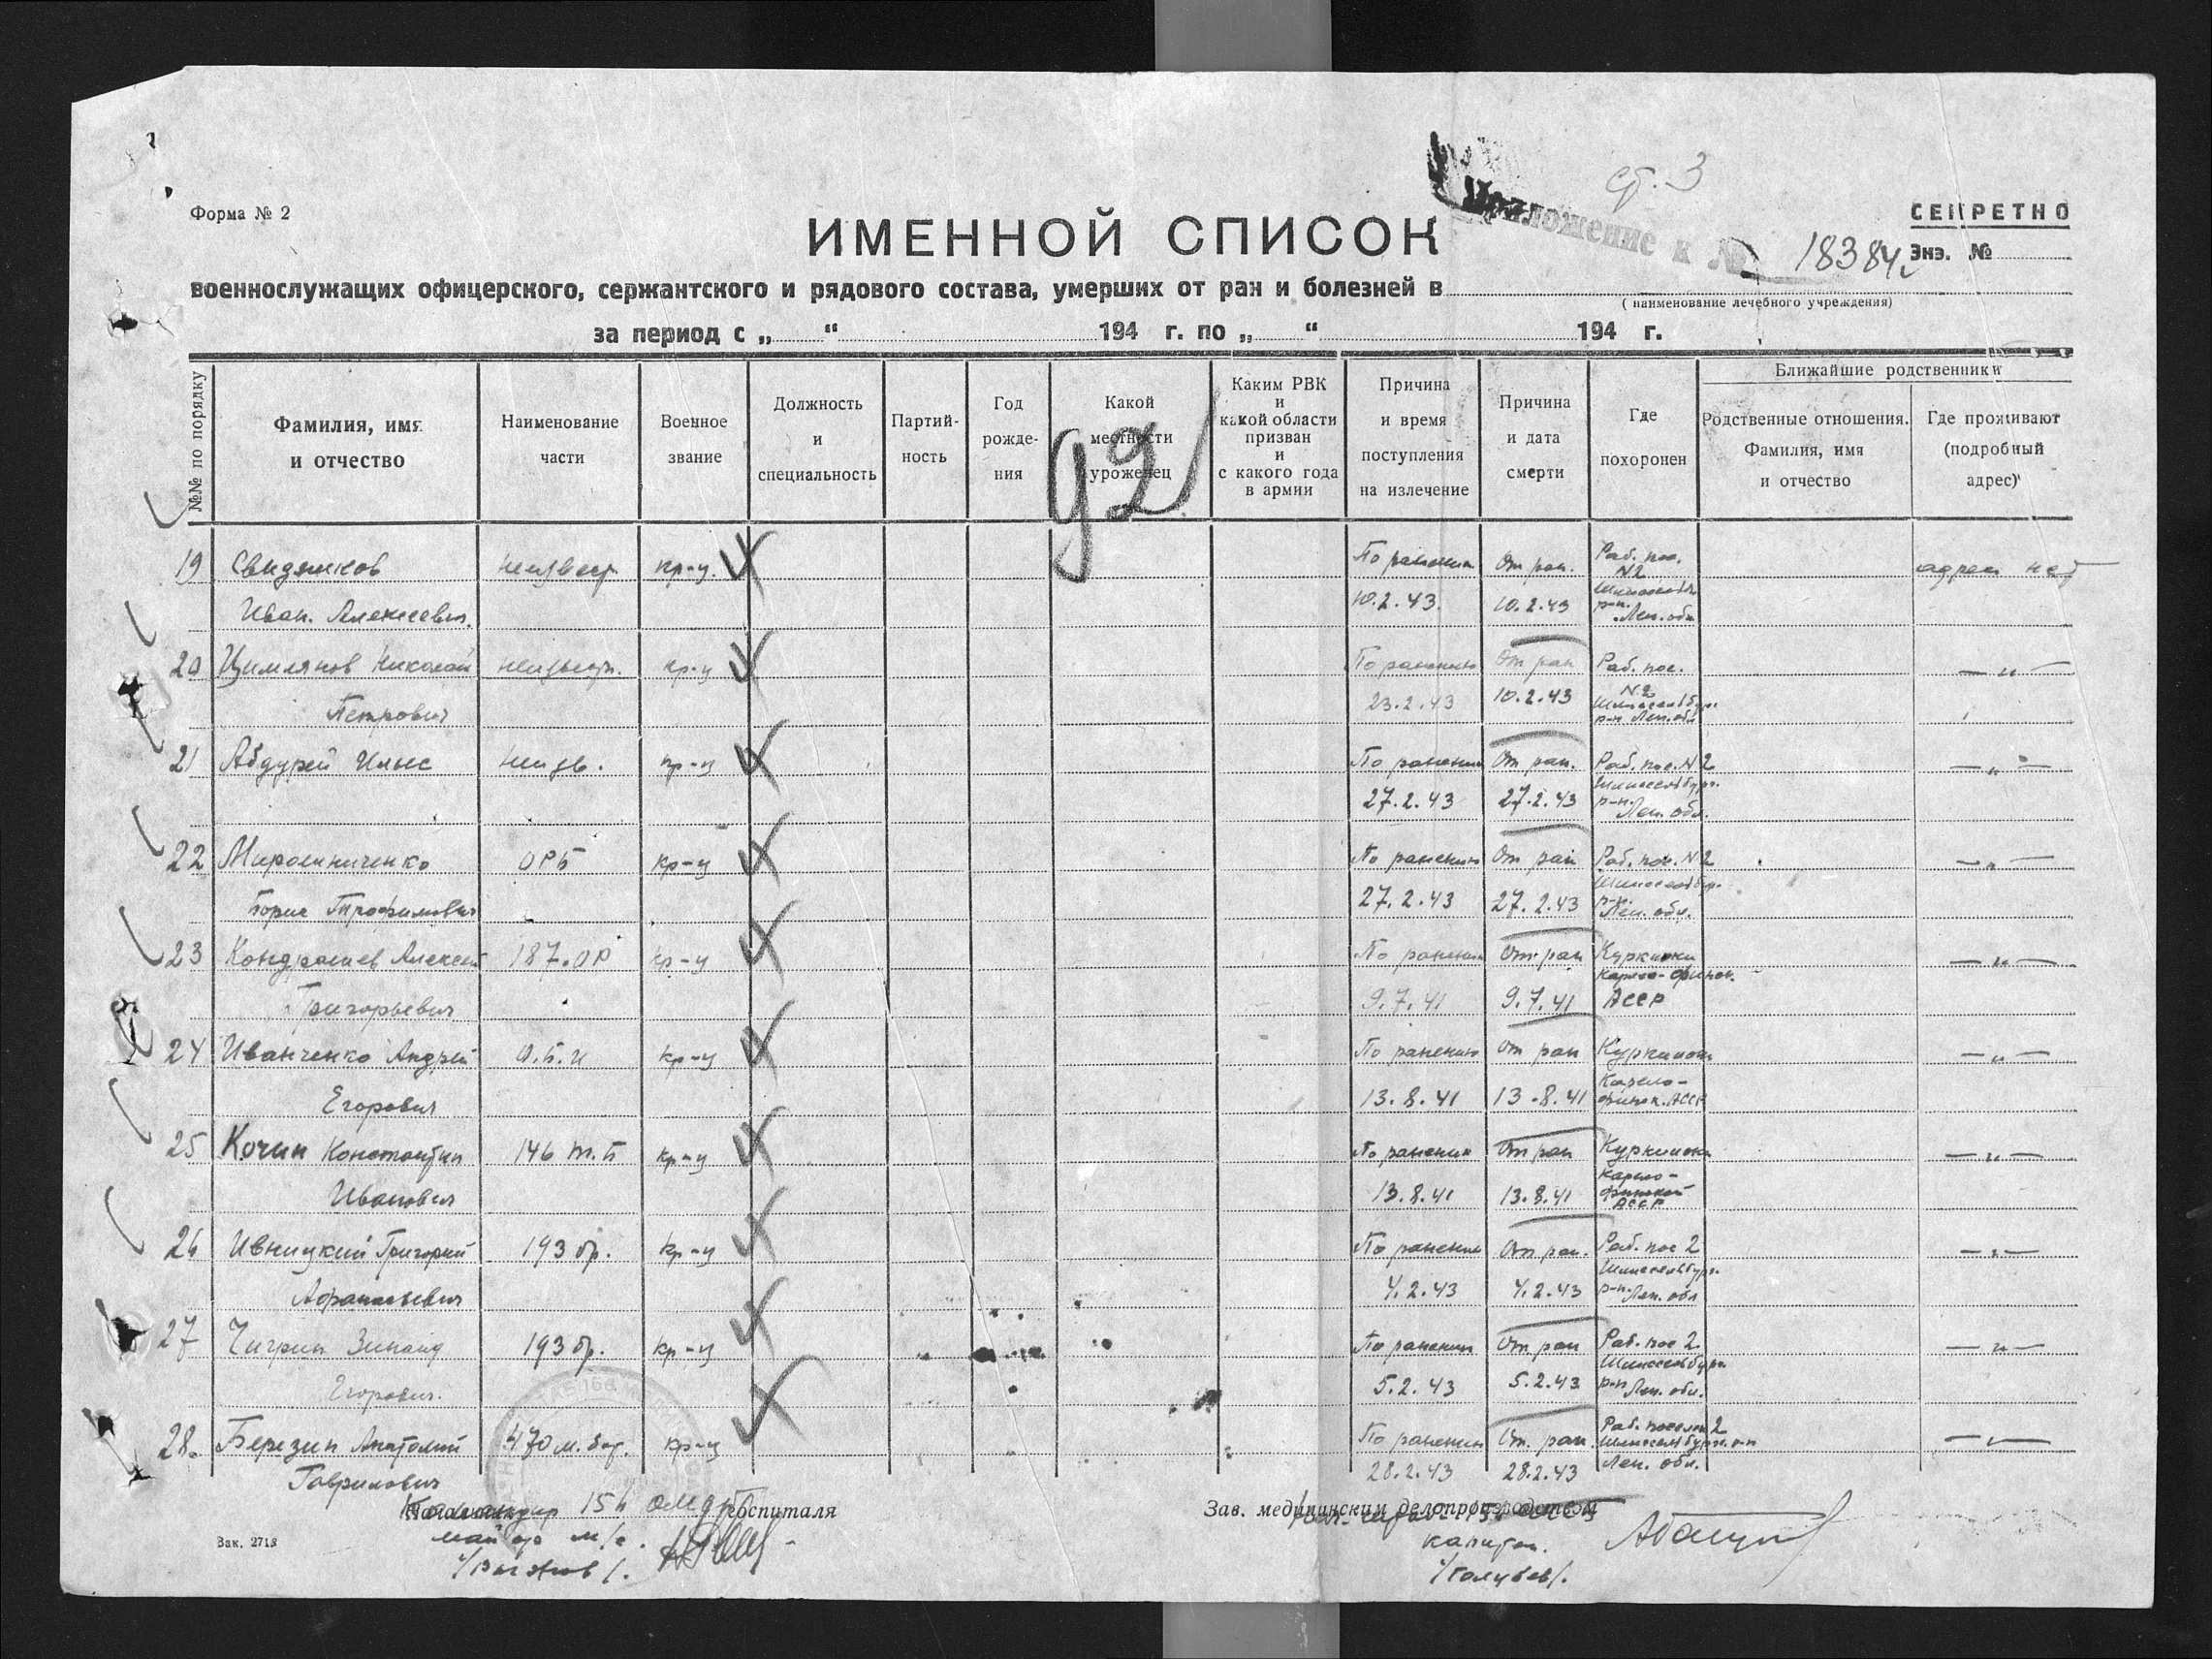 ст. 3
Форма № 2
СЕКРЕТНО
ИМЕННОЙ СПИСОК
Приложение к №
18384с
Экз. №
военнослужащих офицерского, сержантского и рядового состава, умерших от ран и болезней в
(наименование лечебного учреждения)
за период с „ “ 194 г. по „ “ 194 г.
№№ по порядку
Фамилия, имя и отчество
Наименование части
Военное звание
Должность и специальность
Партийность
Год рождения
Какой местности уроженец
Каким РВК и какой области призван и с какого года в армии
Причина и время поступления на излечение
Причина и дата смерти
Где похоронен
Ближайшие родственники
Родственные отношения. Фамилия, имя и отчество
Где проживают (подробный адрес)
92
19 кр-ц По ранению От ран. Раб. пос. адреса нет
Иван Алексеевич. 10.2.43. 10.2.43 N2 р-н. Лен. обл
20 Цимлянов Николай неизвестн. кр-ц По ранению От ран Раб. пос. — „ —
Петрович 23.2.43 10.2.43 N2 Шлиссельбург. р-н Лен. обл
21 Абдурей Ильс неизв. кр-ц По ранению От ран. Раб. пос. N2 — „ —
27.2.43 27.2.43 Шлиссельбург. р-н. Лен. обл.
22 Мирошниченко ОРБ кр-ц По ранению От ран Раб. пос. N2 — „ —
Борис Трофимович 27.2.43 27.2.43 Шлиссельбур. р-н. Лен. обл.
23 Кондрашев Алексей 187.ОР кр-ц По ранению От ран Куркиоки — „ —
Григорьевич 9.7.41 9.7.41 Карело-финск. АССР
24 Иванченко Андрей кр-ц По ранению От ран Куркиоки — „ —
Егорович 13.8.41 13.8.41 Карело-финск. АССР
25 Кочин Константин 146 т.п кр-ц По ранению От ран Куркиоки — „ —
Иванович 13.8.41 13.8.41 Карело-финской АССР
26 Ивницкий Григорий 193 бр. кр-ц По ранению От ран. Раб. пос 2 — „ —
Афанасьевич 4.2.43 4.2.43 Шлиссельбург. р-н. Лен. обл
27 Чигрин 193 бр. кр-ц По ранению От ран Раб. пос 2 — „ —
Егорович. 5.2.43 5.2.43 Шлиссельбург. р-н Лен. обл.
28. Березин Анатолий 470 м. бат. кр-ц По ранению От. ран. Раб. поселок 2 — „ —
Гаврилович 28.2.43 28.2.43 Шлиссельбургск. р-н Лен. обл.
Командир госпиталя
Зав. медицинским делопроизводством
майор м/с.
капитан.
/Голубев/.
Зак. 2718